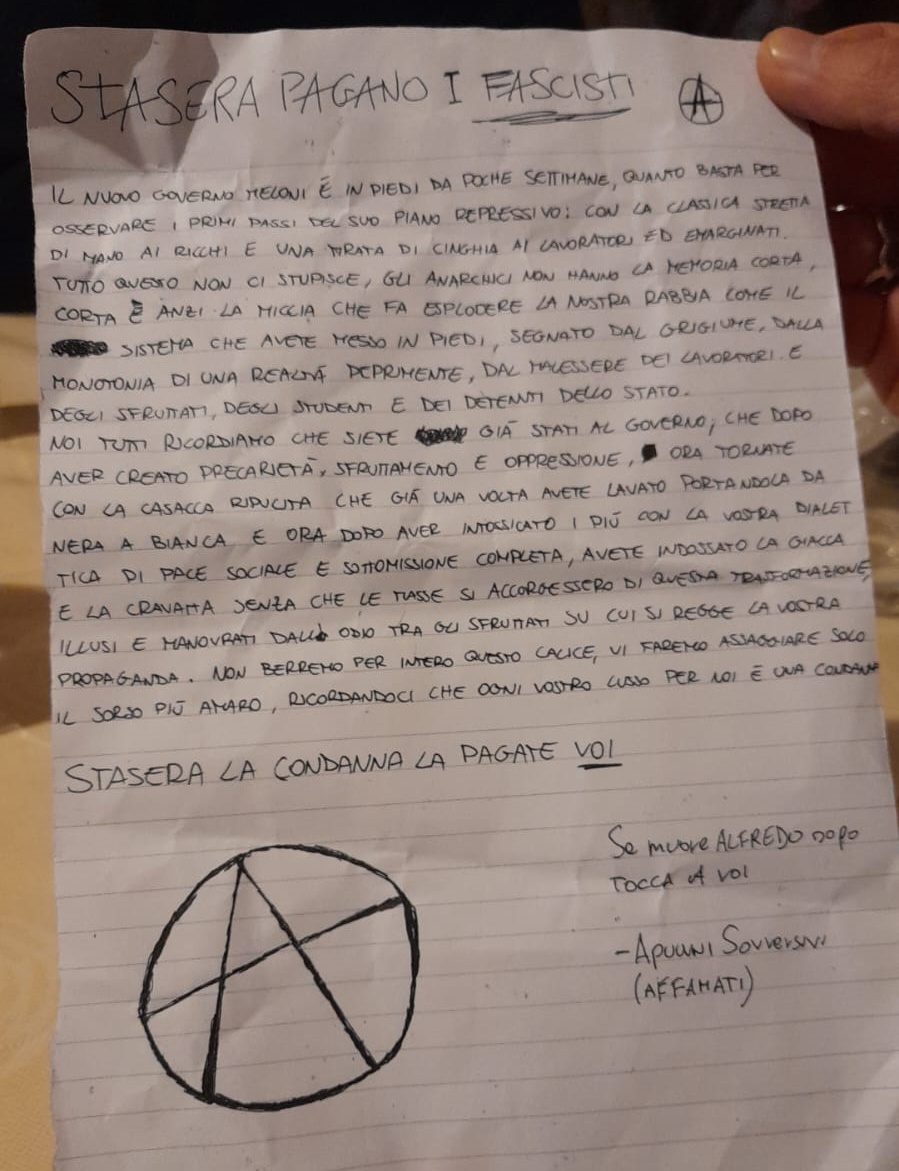 STASERA PAGANO I FASCISTI Ⓐ
IL NUOVO GOVERNO MELONI È IN PIEDI DA POCHE SETTIMANE, QUANTO BASTA PER
OSSERVARE I PRIMI PASSI DEL SUO PIANO REPRESSIVO: CON LA CLASSICA STRETTA
DI MANO AI RICCHI E UNA TIRATA DI CINGHIA AI LAVORATORI ED EMARGINATI.
TUTTO QUESTO NON CI STUPISCE, GLI ANARCHICI NON HANNO LA MEMORIA CORTA,
CORTA È ANZI LA MICCIA CHE FA ESPLODERE LA NOSTRA RABBIA COME IL
SISTEMA CHE AVETE MESSO IN PIEDI, SEGNATO DAL GRIGIUME, DALLA
MONOTONIA DI UNA REALTÀ DEPRIMENTE, DAL MALESSERE DEI LAVORATORI E
DEGLI SFRUTTATI, DEGLI STUDENTI E DEI DETENUTI DELLO STATO.
NOI TUTTI RICORDIAMO CHE SIETE GIÀ STATI AL GOVERNO, CHE DOPO
AVER CREATO PRECARIETÀ, SFRUTTAMENTO E OPPRESSIONE, ORA TORNATE
CON LA CASACCA RIPULITA CHE GIÀ UNA VOLTA AVETE LAVATO PORTANDOLA DA
NERA A BIANCA E ORA DOPO AVER INTOSSICATO I PIÙ CON LA VOSTRA DIALET
TICA DI PACE SOCIALE E SOTTOMISSIONE COMPLETA, AVETE INDOSSATO LA GIACCA
E LA CRAVATTA SENZA CHE LE MASSE SI ACCORGESSERO DI QUESTA TRASFORMAZIONE,
ILLUSI E MANOVRATI DALL' ODIO TRA GLI SFRUTTATI SU CUI SI REGGE LA VOSTRA
PROPAGANDA. NON BERREMO PER INTERO QUESTO CALICE, VI FAREMO ASSAGGIARE SOLO
IL SORSO PIÙ AMARO, RICORDANDOCI CHE OGNI VOSTRO LUSSO PER NOI È UNA CONDANNA
STASERA LA CONDANNA LA PAGATE VOI
Se muore ALFREDO DOPO
TOCCA A VOI
- Apuani Sovversivi
(AFFAMATI)